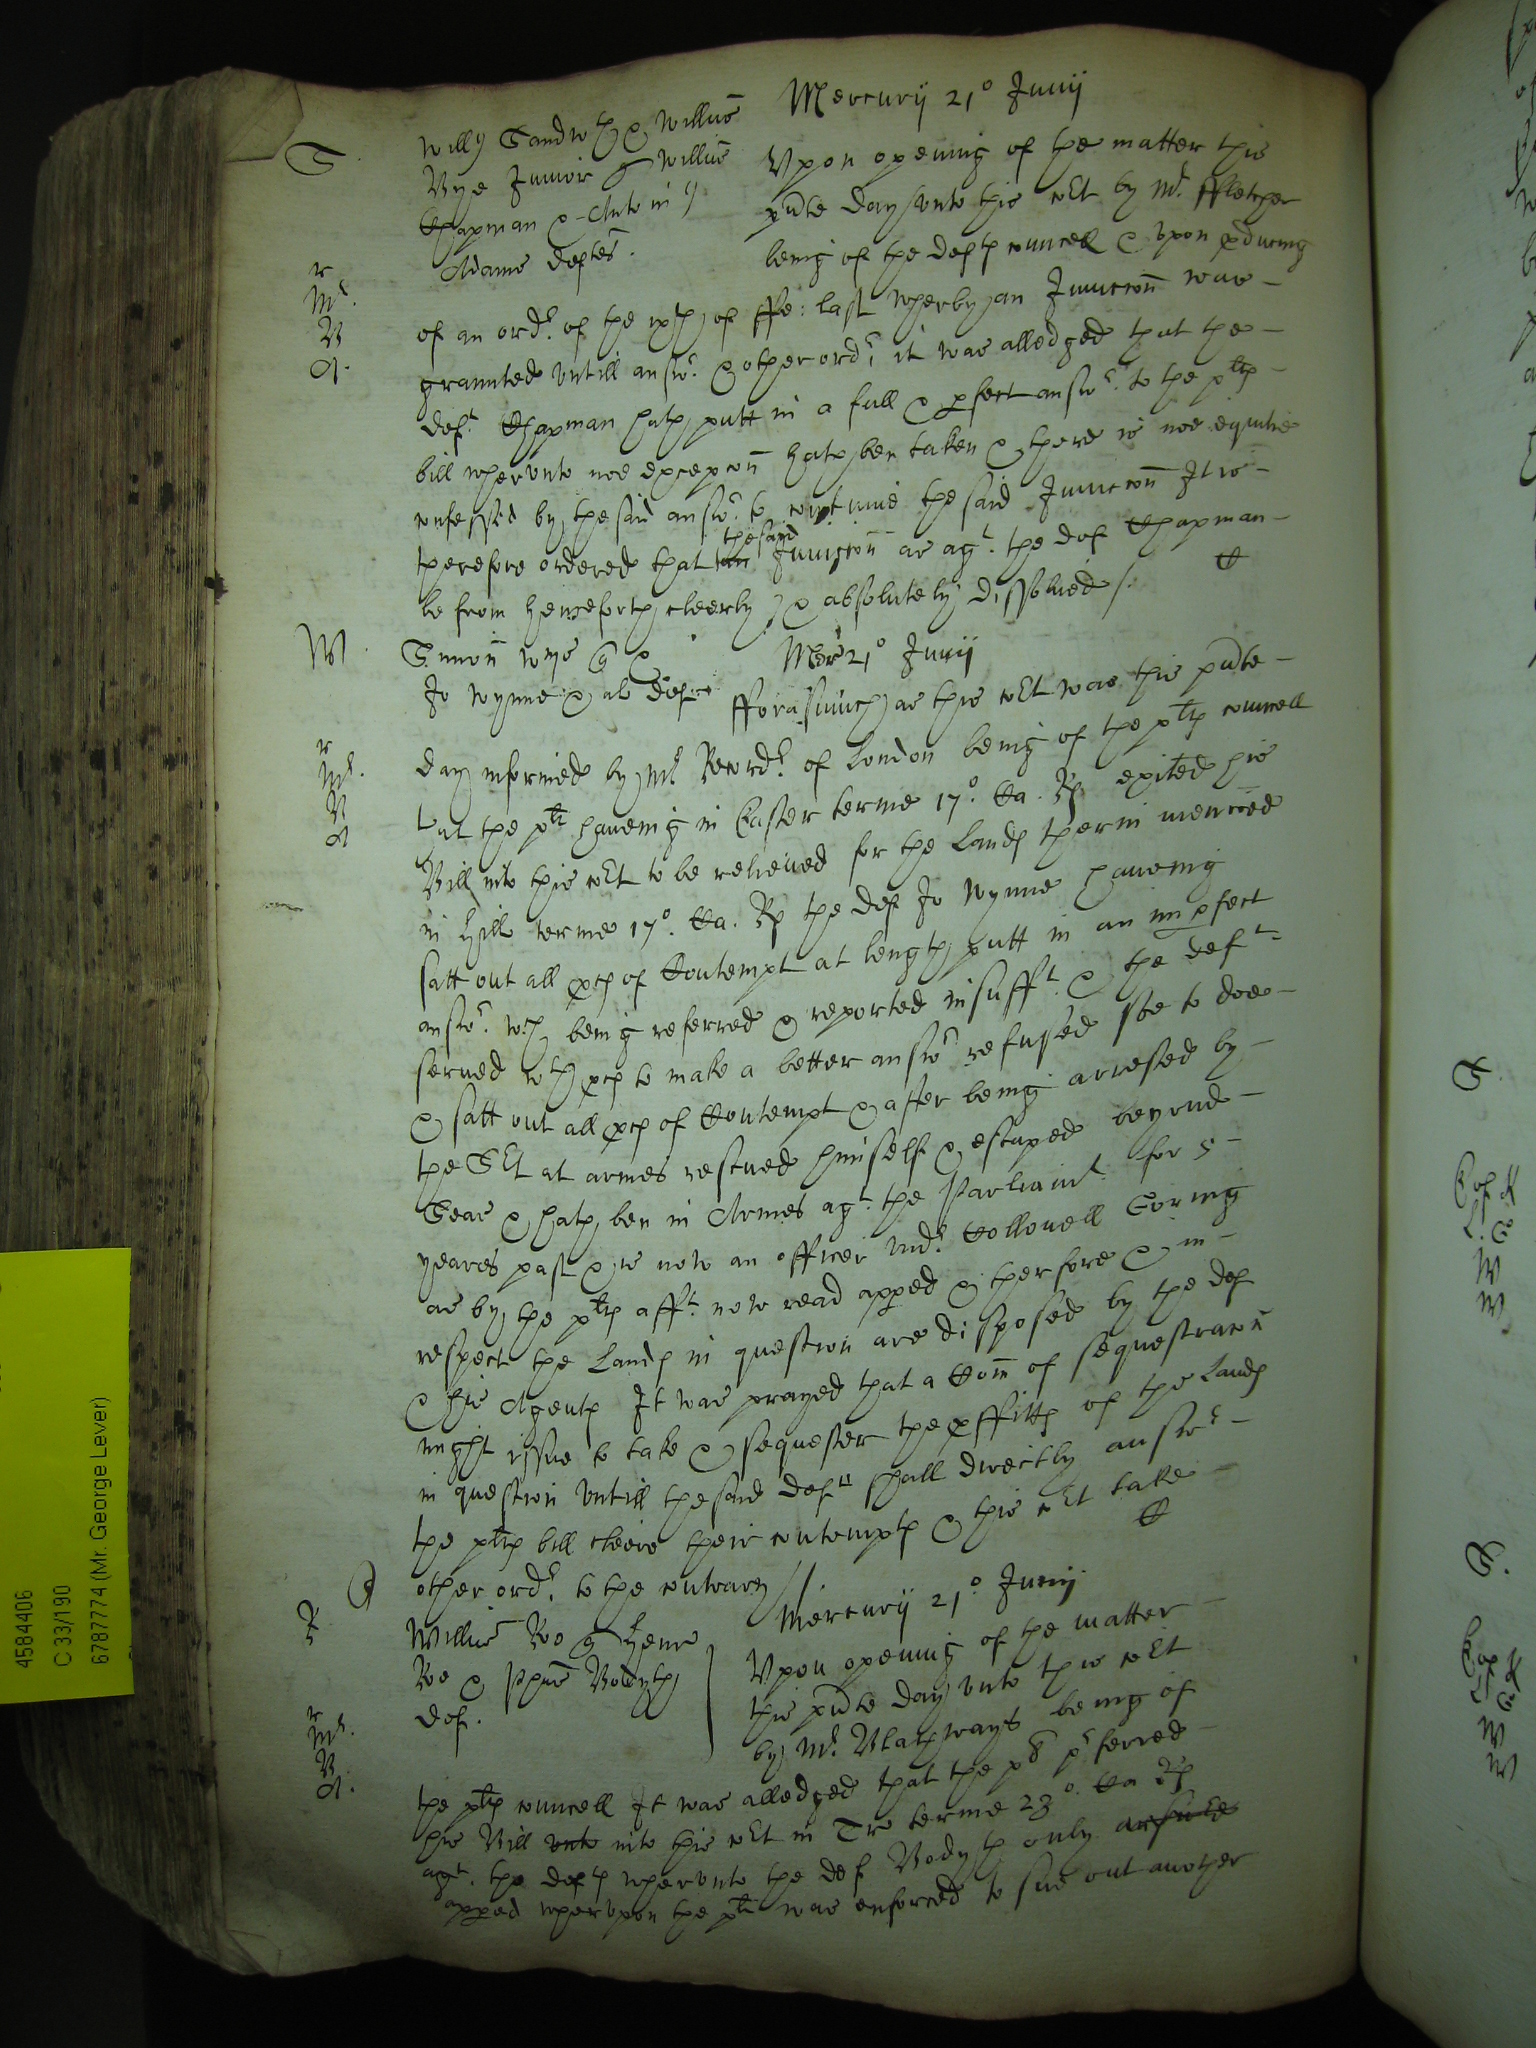 Mercurij 21o Junij
S
Willm Sandwth & Willus
Rye Junior q Willus
Chapman & Antoin
Adams deftes.
Upon opening of the matter this
pnte day unto this cort by Mr. Ffletcher
being of the defts councell & upon pducing
r
Mr.
R
A.
of an ordr. of the ixth of ffe: last wherby an Junccon was -
graunted untill answr. & other ordr. it was alledged that the -
deft. Chapman hath putt in a full & pfect answr. to the plts -
bill wherunto noe excepcon hath ben taken & there is noe equitie
confessed by the said answr. to continue the said Junccon It is -
the said
therefore ordered that an Junccon as agt. the def Chapman -
be from henceforth cleerly & absolutely dissolued /.
W.
Simon q &
Jo Wynne & al def
Mer 21o Junij
fforasmuch as this cort was this pnte -
r
Mr.
R
A
day informed by Mr. Recordr. of London being of the plts councell
that the plt haueing in Easter terme 17o. Ca. Rs exited his
Bill into this cort to be releiued for the Lands therin mencoed
in Hill terme 17o. Ca. Rs the def Jo Wynne haueing
satt out all pces of Contempt at length putt in an impfect
answr. wch being referred & reported insufft. & the deft -
serued wth pces to make a better answr refused soe to doe -
& satt out all pces of Contempt & after being arrested by -
the Srt at armes rescued himself & escaped beyond -
Seas & hath ben in Armes agt. the Parliamt. for 5 -
yeares past & is now an officer undr. Collonell Goring
as by the plts afft. now read appeed & therfore & in -
respect the Lands in question are disposed by the def
& his Agents It was prayed that a Com of sequestracon
might issue to take & sequester the pffitts of the Lands
in question untill the said defts shall directly answr -
the plts bill cleere their contempts & this cort take -
other ordr. to the contrary //
R
Mercurij 21o. Junij
Willus Ro q Henr
Ro &
def.
Upon opening of the matter -
this pnte day unto this cort
by Mr. Blathwayt being of
r
Mr.
R
A.
the plts councell It was alledged that the plt pferred -
his Bill unto into this cort in Tr terme 23o. Ca Rs
agt. the defts wherunto the def only
appeed wherupon the plt was enforced to sue out another
4584406
C 33/190
6787774 (Mr. George Lever)